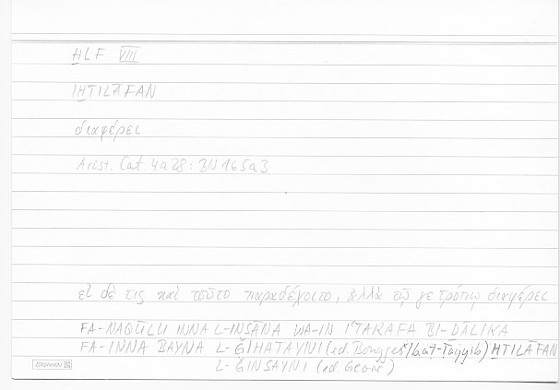 ḪLF VIII
IḪTILĀFAN
διαφέρει
Arist. Cat. 4a28: BN 165a3
εἰ δέ τις καὶ τοῦτο παραδέχοιτο, ἀλλὰ τῷ γε τρόπῳ διαφέρει
FA-NAQŪLU INNA L-INSĀNA WA-IN I'TARAFA BI-ḎĀLIKA
FA-INNA BAYNA L-ǦIHATAYNI (ed. Bouyges / Ibn aṭ-Ṭayyib) IḪTILĀFAN
L-ǦINSAYNI (ed. Georr)